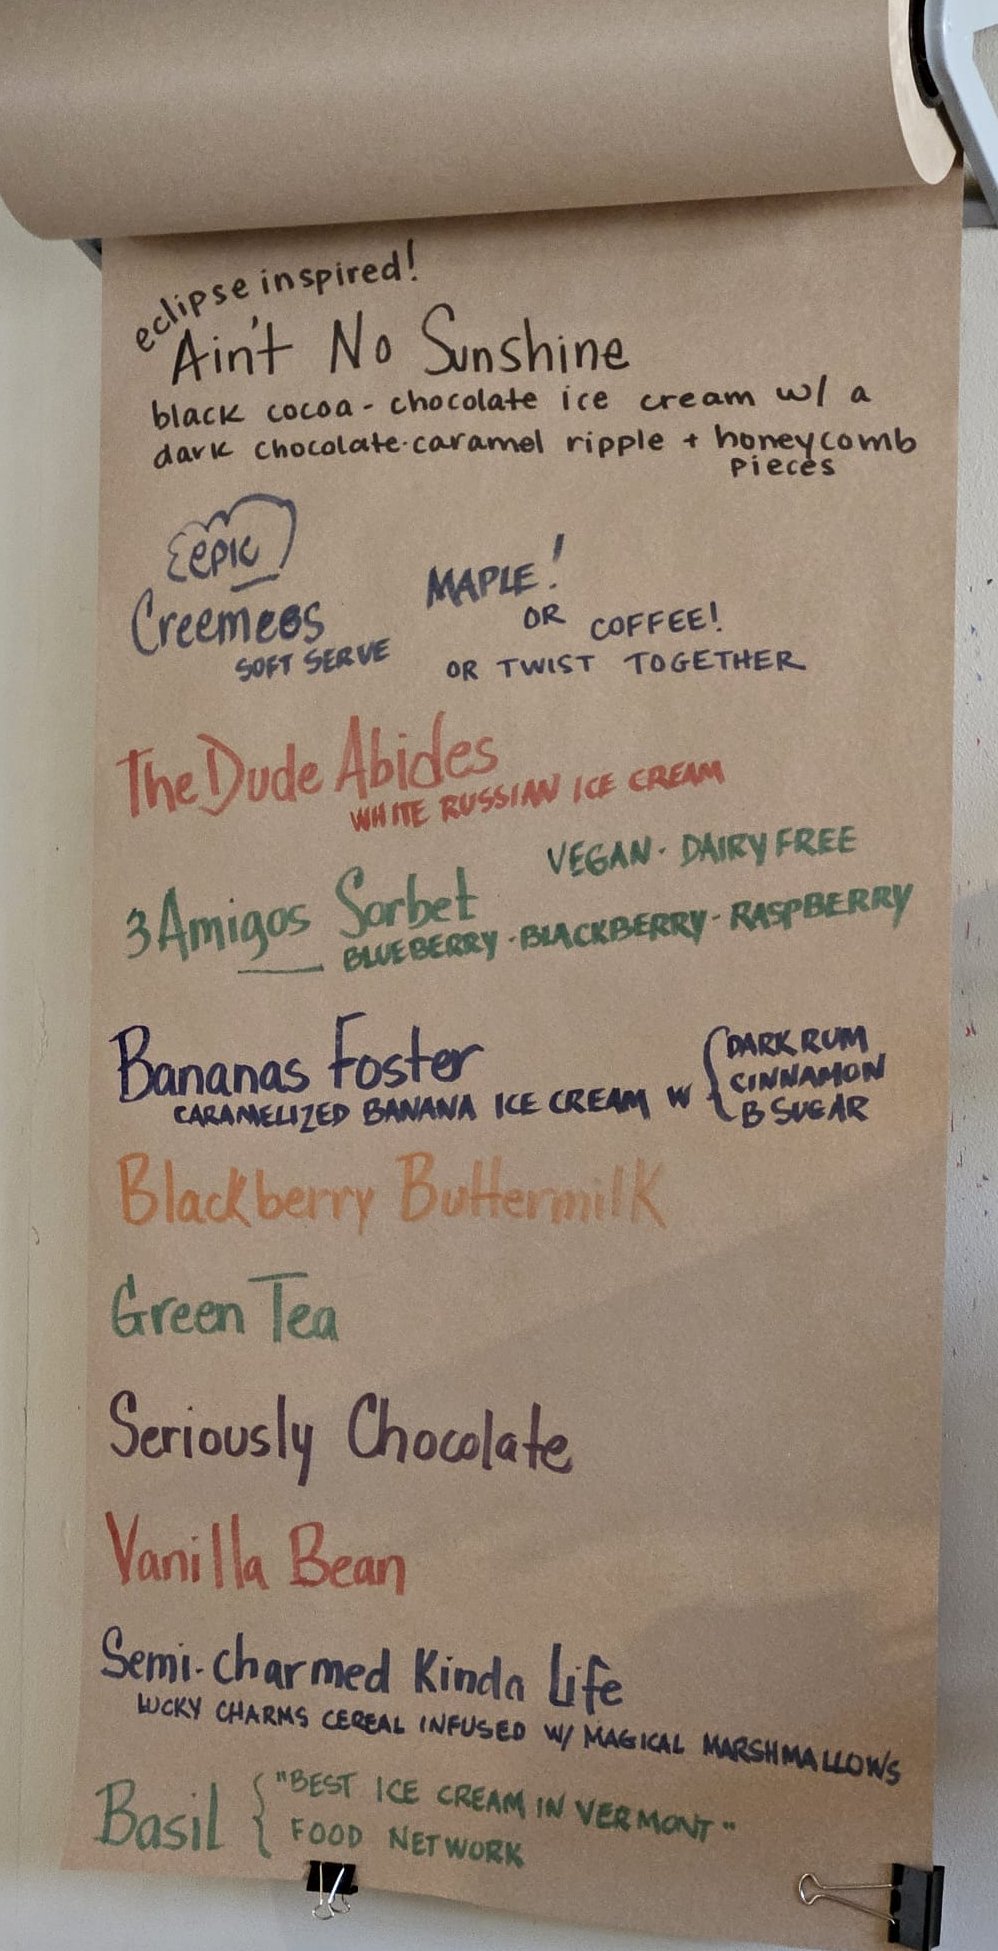 eclipse inspired!
Ain't No Sunshine
black cocoa - chocolate ice cream w/ a
dark chocolate-caramel ripple + honeycomb
pieces
epic
Creemees
SOFT SERVE
MAPLE!
OR COFFEE!
OR TWIST TOGETHER
The Dude Abides
WHITE RUSSIAN ICE CREAM
3 Amigos Sorbet
VEGAN · DAIRY FREE
BLUEBERRY · BLACKBERRY · RASPBERRY
Bananas Foster
CARAMELIZED BANANA ICE CREAM W
DARK RUM
CINNAMON
B SUGAR
Blackberry Buttermilk
Green Tea
Seriously Chocolate
Vanilla Bean
Semi-charmed Kinda Life
LUCKY CHARMS CEREAL INFUSED W/ MAGICAL MARSHMALLOWS
Basil
"BEST ICE CREAM IN VERMONT"
FOOD NETWORK